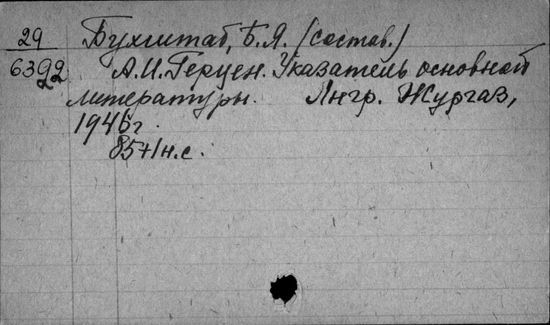 29
6392
Бухштаб, Б.Я. (состав.)
А.И. Герцен. Указатель основной
литературы. Лнгр. Жургаз,
1945 г.
85+1 н.с.